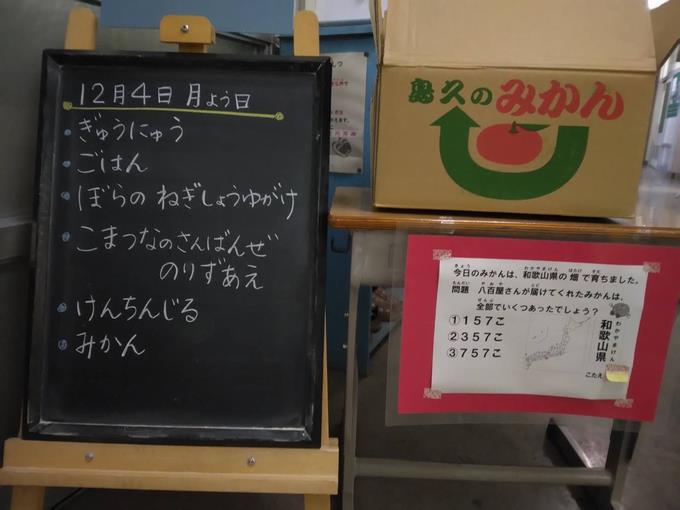 12月4日 月よう日
ぎゅうにゅう
ごはん
ぼらの ねぎしょうゆがけ
こまつなのさんばんぜ
のりずあえ
けんちんじる
みかん
久のみかん
今日のみかんは、和歌山県の畑で育ちました。
問題 八百屋さんが届けてくれたみかんは、
全部でいくつあったでしょう？
①157こ
②357こ
③757こ
和歌山県
わかやまけん
こたえ